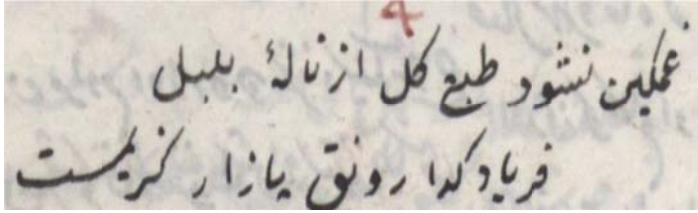 غمکین نشود طبع کل از نالهٔ بلبل
فریاد کدا رونق بازار کریمست